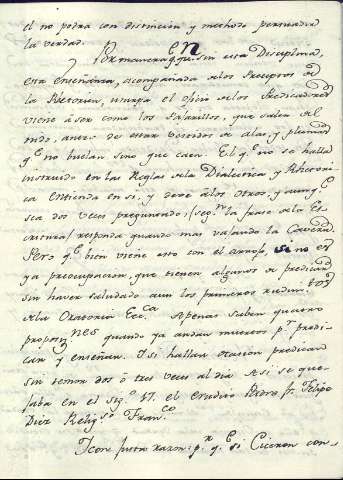 el no podrá con distincion y methodo persuadir
la verdad.
Por manera q.e sin esta Disciplina,
esta enseñanza, acompañada alos Preceptos de
la Rhetorica, usurpa el oficio alos Predicadores
viene à ser como los Paxarillos, que salen al
nido, antes de estar vestidos de alas, y plumas
q.e no buelan sino que caen. El q.e no se halla
instruido en las Reglas ala Dialectica y Rhetori
ca entienda en si, y deve à los otros, y aunq.e
sea dos veces preguntado, (seg.n la frase ala Es
critura) responda quando mas
Pero q.e bien viene esto con el arrojo, si no es
ya preocupacion, que tienen algunos a predicar
sin haver saludado aun los primeros rudim.tos
ala Oratoria Ecc.ca Apenas saben quatro
proposi.nes quando ya andan muertos p.r predi
car y enseñar. Y si hallan ocasion predican
sin temor dos ò tres veces al dia Asi se que
jaba en el sig.o 17. el erudito Padre fr. Felipe
Diez Relig.so Fran.co
Y con justa razon: p.r q.e si Ciceron con-